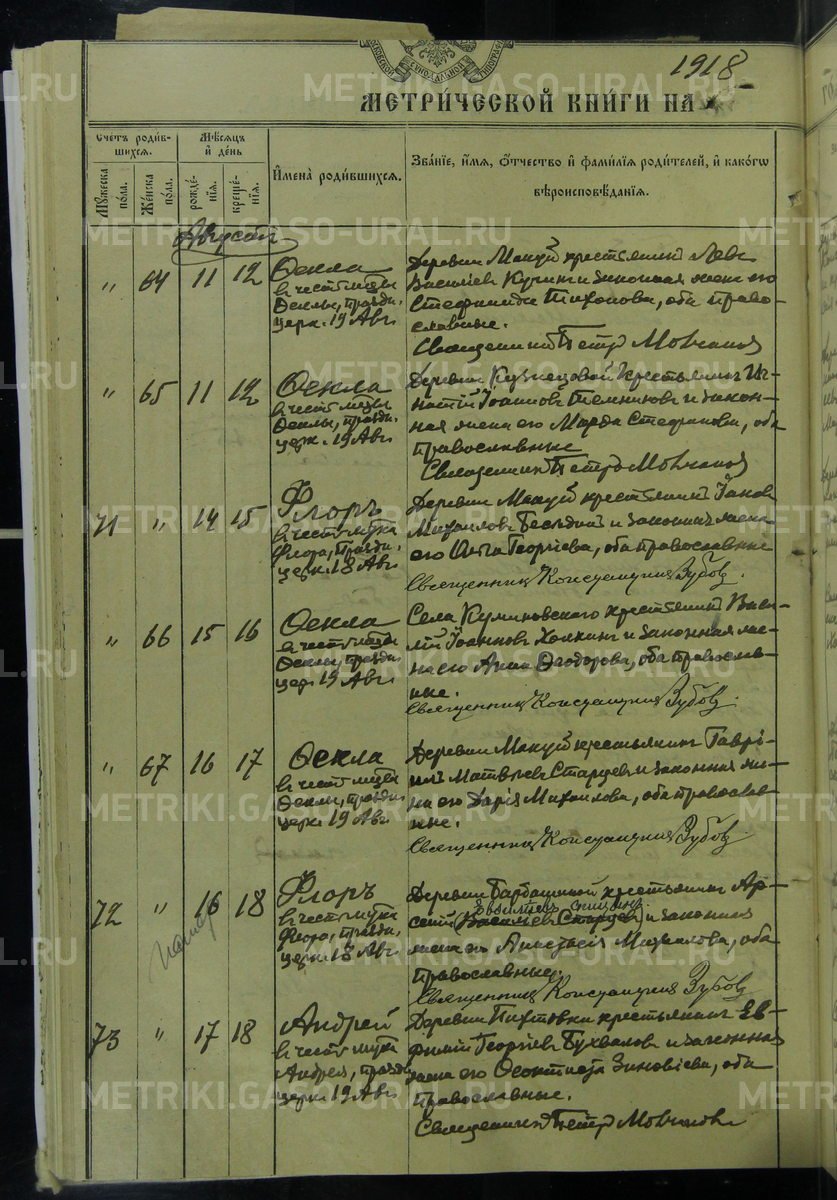 1918
МЕТРИ́ЧЕСКОЙ КНИ́ГИ НА
Сче́тъ роди́в-
шихся.
Мѣ́сяцъ
и҆ де́нь
И҆мена̀ роди́вшихся.
Зва́нїе, и҆́мя, ѻ҆́тчество и҆ фами́лїя роди́телей, и҆ како́гѡ
вѣроисповѣ́данїя.
Му́жеска
по́ла.
Же́нска
по́ла.
рожде́-
нїя.
креще́-
нїя.
Августъ
" 64 11 12 Ѳекла
в честь мцы
Ѳеклы, праздн.
церк. 19 Авг.
Деревни Макуй крестьянинъ Левъ
Васильевъ Кучинъ и законная жена его
Стефанида Тихонова, оба право-
славные.
Священникъ Петръ Мовчановъ
" 65 11 12 Ѳекла
в честь мцы
Ѳеклы, праздн.
церк. 19 Авг.
Деревни Кузнецовой крестьянинъ Иг-
натій Іоанновъ Темниковъ и закон-
ная жена его Марѳа Стефанова, оба
православные
Священникъ Петръ Мовчановъ
71 " 14 15 Флоръ
в честь мчка
Флора, праздн.
церк. 18 Авг.
Деревни Макуй крестьянинъ Іаковъ
Михаиловъ и законная жена
его Ольга Георгіева, оба православные
Священникъ Константинъ Зубовъ.
" 66 15 16 Ѳекла
в честь мцы
Ѳеклы, праздн.
церк. 19 Авг.
Села крестьянинъ Васи-
лій Іоанновъ и законная же-
на его Анна Ѳеодорова, оба православ-
ные.
Священникъ Константинъ Зубовъ.
" 67 16 17 Ѳекла
в честь мцы
Ѳеклы, праздн.
церк. 19 Авг.
Деревни Макуй крестьянинъ Гаврі-
илъ Матвѣевъ Старцевъ и законная же-
на его Дарія Михаилова, оба православ-
ные.
Священникъ Константинъ Зубовъ
72 " 16 18 Флоръ
в честь мчка
Флора, праздн.
церк. 18 Авг.
Деревни Барбашиной крестьянинъ Ар-
сеній Васильевъ Старцевъ и законная
жена его Анастасія Михаилова, оба
православные.
Священникъ Константинъ Зубовъ
73 " 17 18 Андрей
в честь мчка
Андрея, праздн.
церк. 19 Авг.
Деревни Пихтовки крестьянинъ Ев-
фимій Георгіевъ Бухваловъ и законная
жена его Ѳеоктиста Зиновіева, оба
православные.
Священникъ Петръ Мовчановъ
METRIKI.GASO-URAL.RU